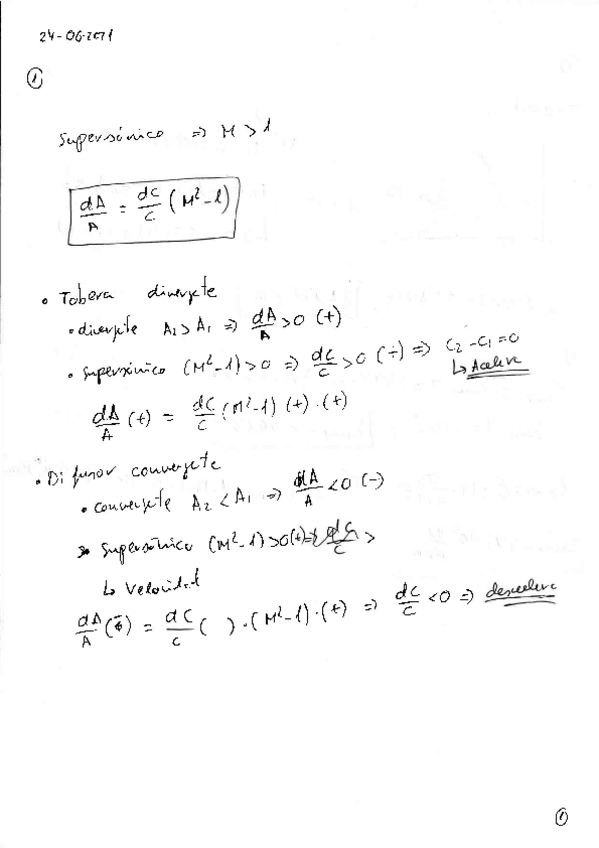 24-06-2021
1
Supersónico => M > 1
dA/A = dC/C (M²-1)
• Tobera divergete
• divergete A₂>A₁ => dA/A >0 (+)
• Supersónico (M²-1)>0 => dC/C >0 (+) => C₂-C₁=0
↳ Acelera
dA/A (+) = dC/C (M²-1) (+)·(+)
• Difusor convergete
• convergete A₂<A₁ => dA/A <0 (-)
Supersónico (M²-1)>0(+) dC/C >
↳ Velocidad
dA/A (-) = dC/C ( )·(M²-1)·(+) => dC/C <0 => desacelera
1